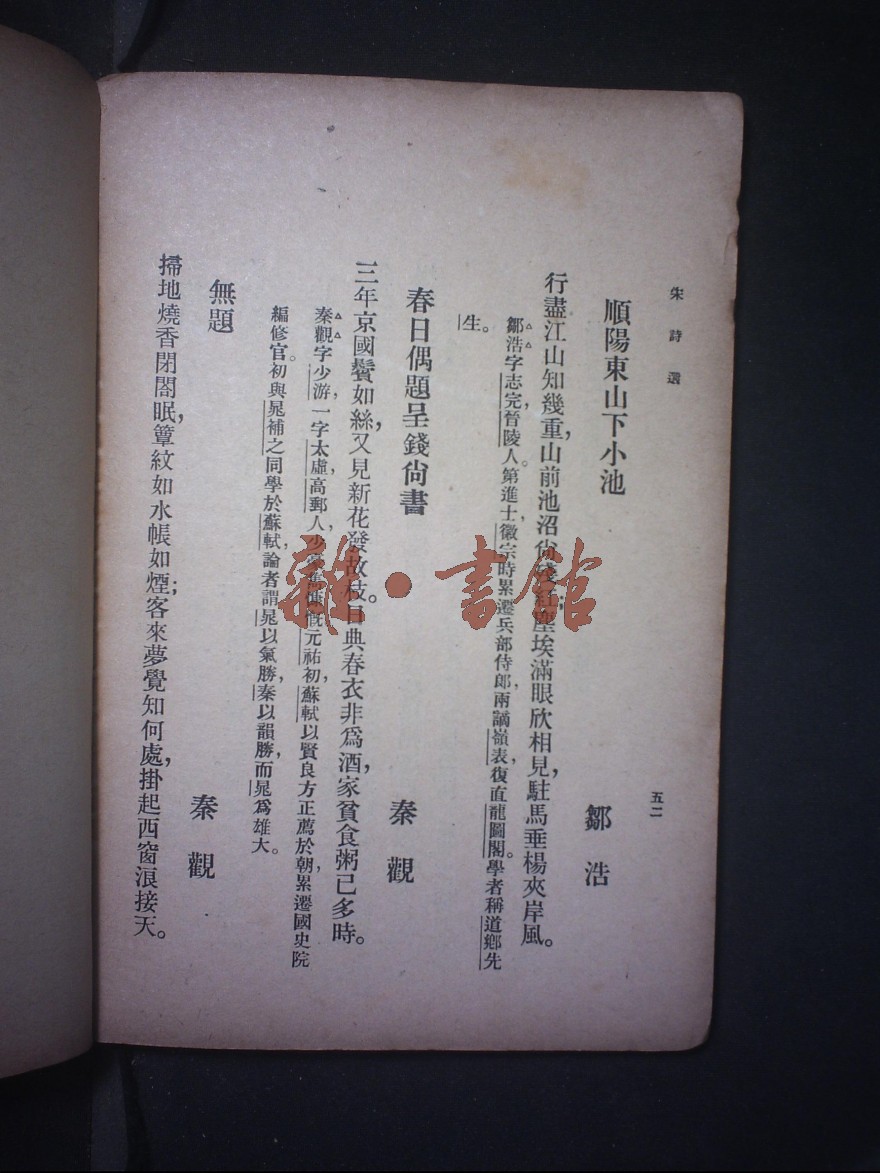 宋詩選
五二
順陽東山下小池
鄒浩
行盡江山知幾重,山前池沼尙殘紅;塵埃滿眼欣相見,駐馬垂楊夾岸風。
鄒浩字志完,晉陵人。第進士,徽宗時累遷兵部侍郎,兩謫嶺表,復直龍圖閣。學者稱道鄉先
生。
春日偶題呈錢尙書
秦觀
三年京國鬢如絲,又見新花發故枝。日典春衣非爲酒,家貧食粥已多時。
秦觀字少游,一字太虛,高郵人,少豪雋慷慨,元祐初,蘇軾以賢良方正薦於朝,累遷國史院
編修官。初與晁補之同學於蘇軾,論者謂晁以氣勝,秦以韻勝,而晁爲雄大。
無題
秦觀
掃地燒香閉閤眠,簟紋如水帳如煙;客來夢覺知何處,掛起西窗浪接天。
雜·書館